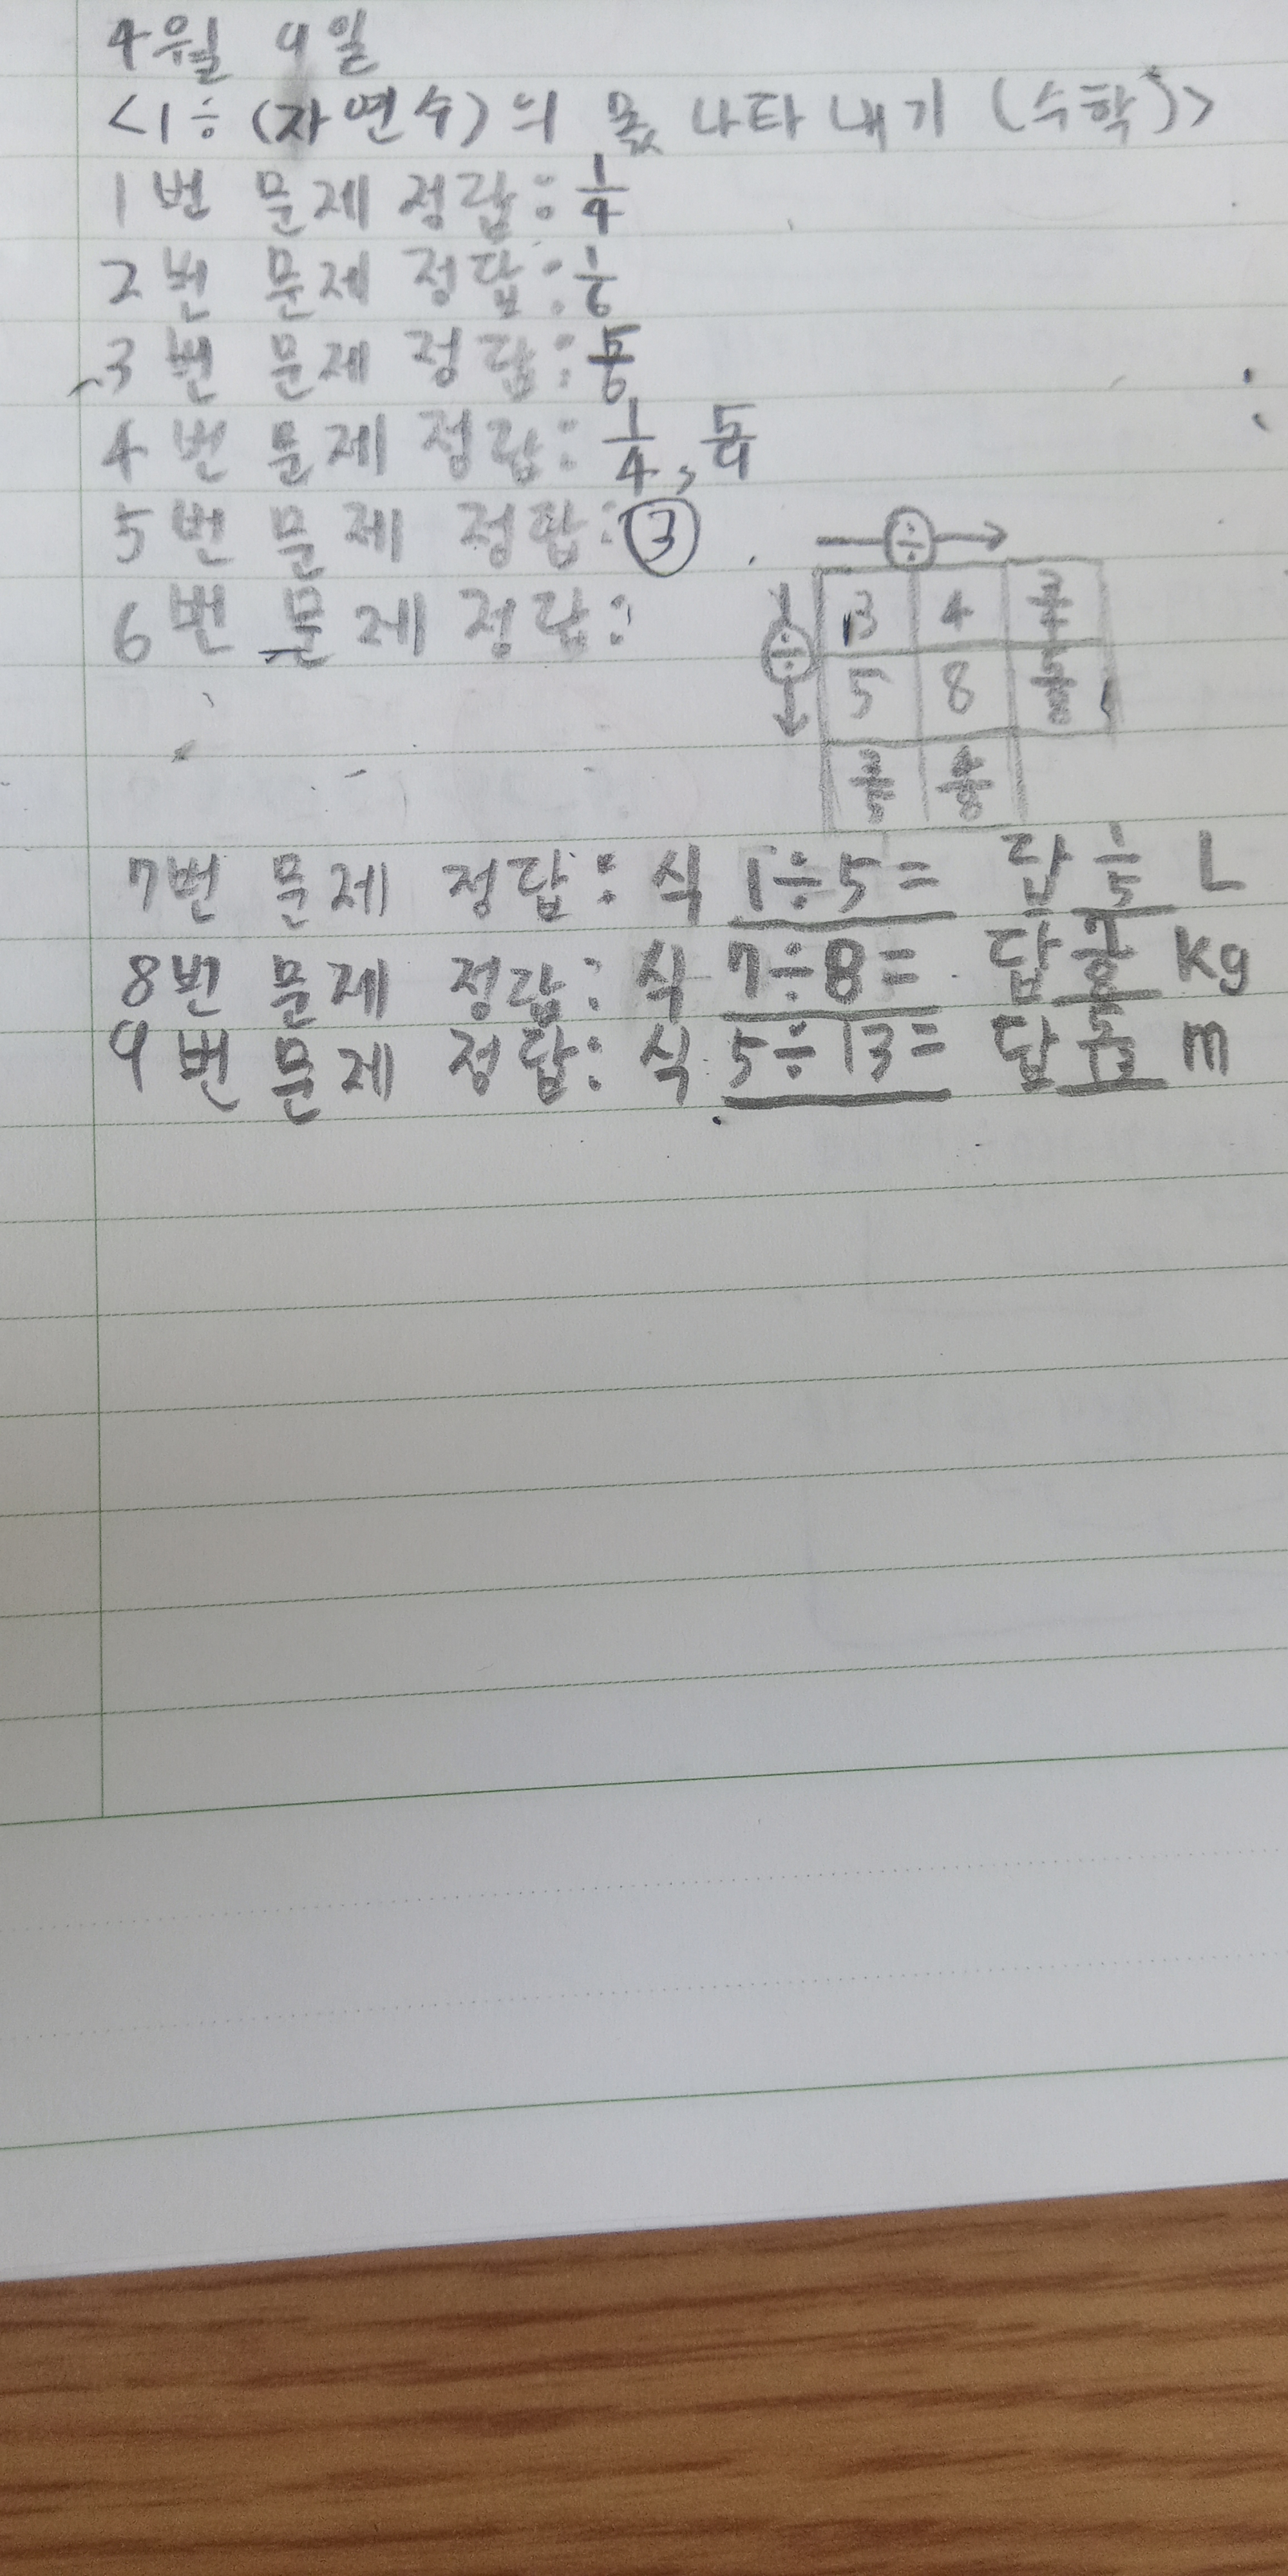 4월 9일
<1÷(자연수)의 몫 나타내기 (수학)>
1번 문제 정답: 1/4
2번 문제 정답: 1/6
3번 문제 정답: 5/6
4번 문제 정답: 1/4, 5/9
5번 문제 정답: ③
6번 문제 정답:
÷ →
÷ ↓
3 4 3/4
5 8 5/8
3/5 4/8
7번 문제 정답: 식 1÷5= 답 1/5 L
8번 문제 정답: 식 7÷8= 답 7/8 kg
9번 문제 정답: 식 5÷13= 답 5/13 m